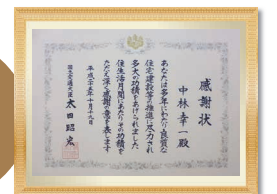 感謝状
中林幸一殿
あなたは多年にわたり良質な
住宅建設等の推進に尽力され
多大の功績をあげられました
住生活月間にあたりその功績を
たたえ深く感謝の意を表します
平成二十五年十月十九日
国土交通大臣 太田昭宏